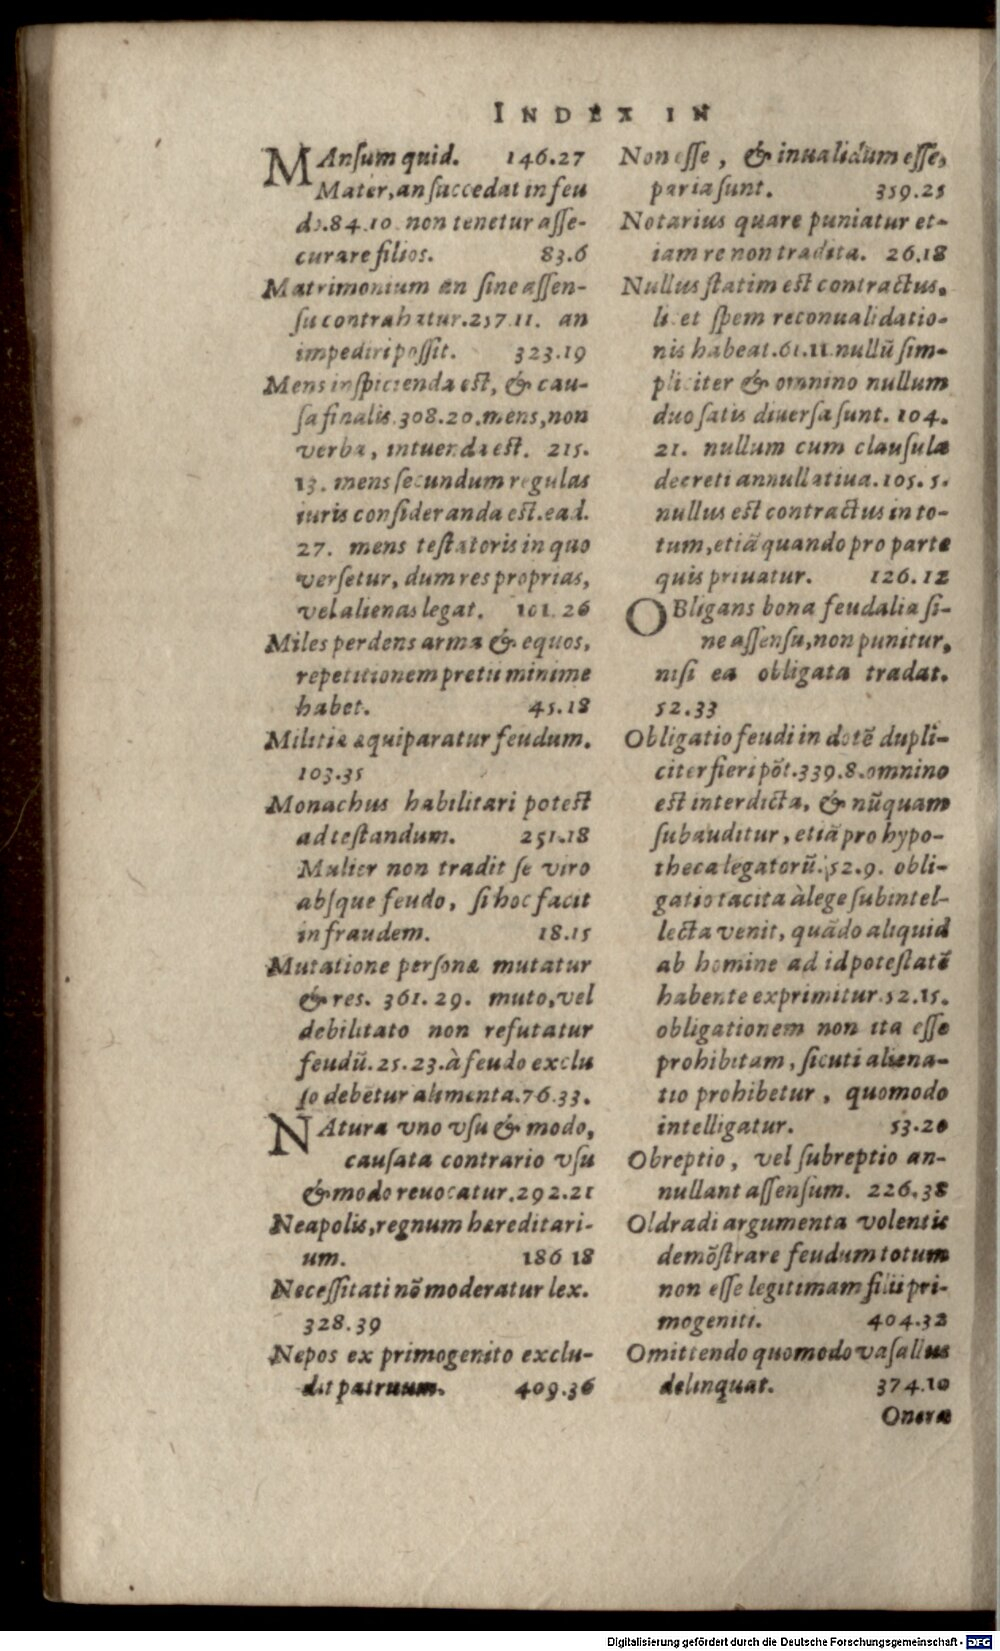 INDEX IN
MAnſum quid. 146.27
Mater, an ſuccedat in feu
do.84.10. non tenetur aſſe-
curare filios. 83.6
Matrimonium an ſine aſſen-
ſu contrahatur.257.11. an
impediri poſſit. 323.19
Mens inſpicienda est, & cau-
ſa finalis.308.20.mens,non
verba, intuenda est. 215.
13. mens ſecundum regulas
iuris conſideranda est.ead.
27. mens testatoris in quo
verſetur, dum res proprias,
vel alienas legat. 101.26
Miles perdens arma & equos,
repetitionem pretii minime
habet. 45.18
Militiæ æquiparatur feudum.
103.35
Monachus habilitari potest
ad testandum. 251.18
Mulier non tradit ſe viro
abſque feudo, ſi hoc facit
in fraudem. 18.15
Mutatione perſonæ mutatur
& res. 361.29. muto, vel
debilitato non refutatur
feudū.25.23.à feudo exclu
ſo debētur alimenta.76.33.
NAtura vno vſu & modo,
cauſata contrario vſu
& modo reuocatur.292.21
Neapolis, regnum hæreditari-
um. 186 18
Neceſſitati nō moderatur lex.
328.39
Nepos ex primogenito exclu-
dit patruum. 409.36
Non eſſe, & inualidum eſſe,
paria ſunt. 359.25
Notarius quare puniatur et-
iam re non tradita. 26.18
Nullus ſtatim est contractus,
li et ſpem reconualidatio-
nis habeat.61.11.nullū ſim-
pliciter & omnino nullum
duo ſatis diuerſa ſunt. 104.
21. nullum cum clauſula
decreti annullatiua.105.5.
nullus est contractus in to-
tum, etiā quando pro parte
quis priuatur. 126.12
OBligans bona feudalia ſi-
ne aſſenſu, non punitur,
niſi ea obligata tradat.
52.33
Obligatio feudi in dotē dupli-
citer fieri pōt.339.8.omnino
est interdicta, & nūquam
ſubauditur, etiā pro hypo-
theca legatorū.52.9. obli-
gatio tacita à lege ſubintel-
lecta venit, quādo aliquid
ab homine ad id potestatē
habente exprimitur.52.15.
obligationem non ita eſſe
prohibitam, ſicuti aliena-
tio prohibetur, quomodo
intelligatur. 53.20
Obreptio, vel ſubreptio an-
nullant aſſenſum. 226.38
Oldradi argumenta volentis
demōſtrare feudum totum
non eſſe legitimam filii pri-
mogeniti. 404.32
Omittendo quomodo vaſallus
delinquat. 374.10
Onera
Digitalisierung gefördert durch die Deutsche Forschungsgemeinschaft - DFG